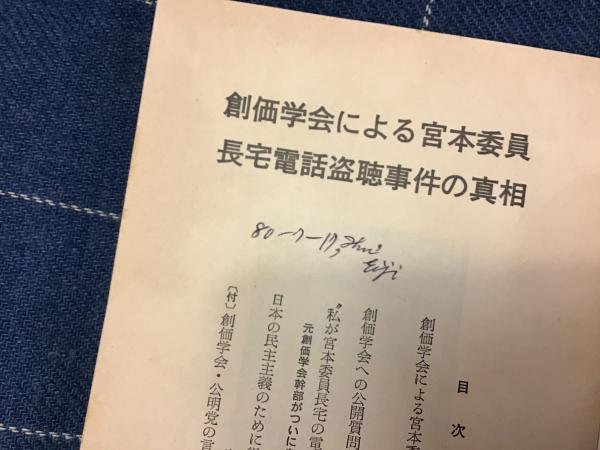 創価学会による宮本委員
長宅電話盗聴事件の真相
80-7-17,
Eiji
目次
創価学会による宮本委
創価学会への公開質問
“私が宮本委員長宅の電
元創価学会幹部がついに
日本の民主主義のために
〔付〕創価学会・公明党の言